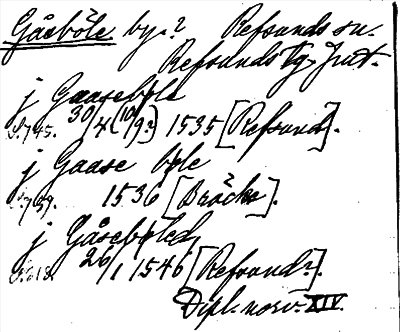 Gåsböle by.? Refsunds sn.
Refsunds tg. Jmt.
j Gaasebøle
S. 745. 30/4 (10/9?) 1535 [Refsund].
j Gaase bøle
1536 [Bräcke].
j Gåsebøled
26/1 1546 [Refsund?].
Dipl. norv. XIV.